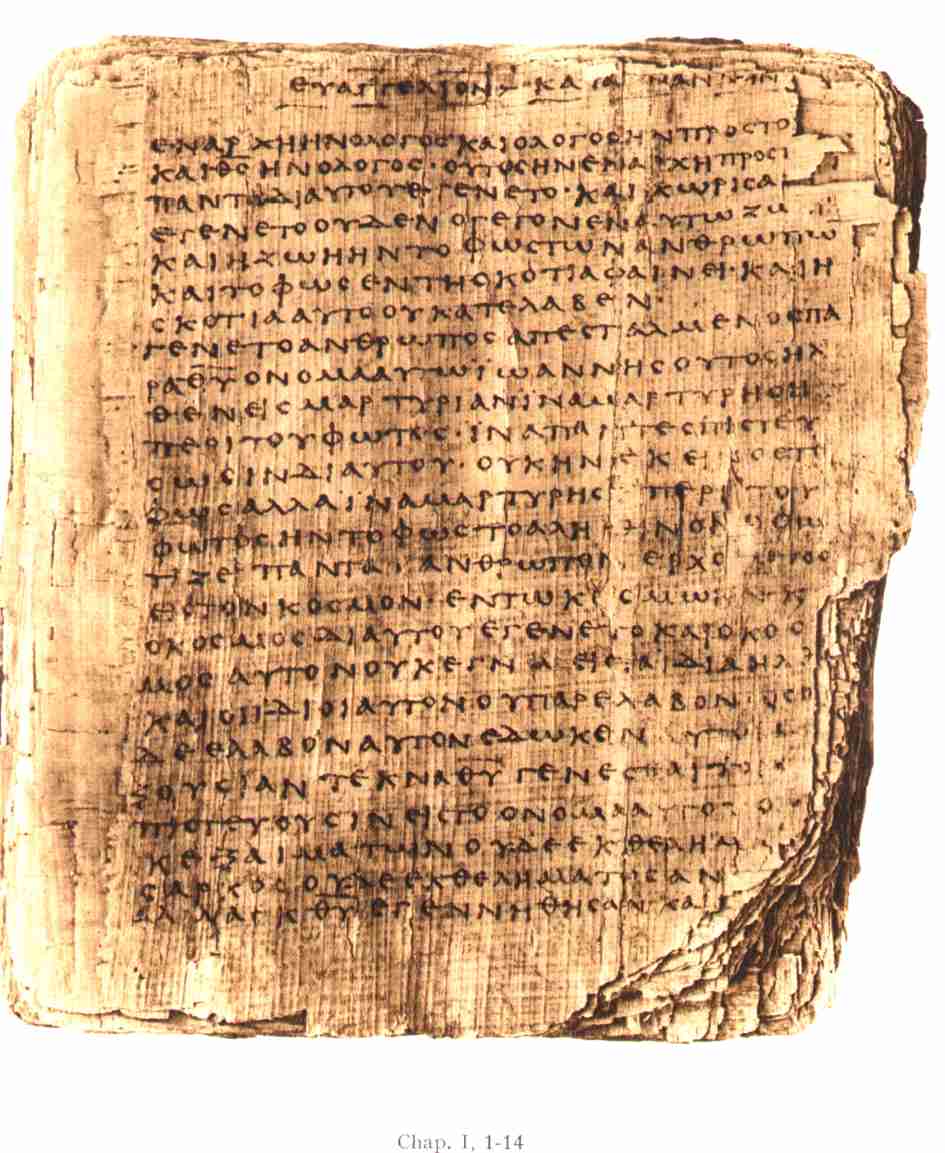 ΕΥΑΓΓΕΛΙΟΝ ΚΑΤΑ
ΕΝΑΡΧΗΗΝΟΛΟΓΟΣΚΑΙΟΛΟΓΟΣΗΝΠΡΟΣΤΟ
ΚΑΙΘΣΗΝΟΛΟΓΟΣ·ΟΥΤΟΣΗΝΕΝΑΡΧΗΠΡΟΣΤ
ΠΑΝΤΑΔΙΑΥΤΟΥΕΓΕΝΕΤΟ·ΚΑΙΧΩΡΙΣΑ
ΕΓΕΝΕΤΟΟΥΔΕΝΟΓΕΓΟΝΕΝΕΝΑΥΤΩΖΩ
ΚΑΙΗΖΩΗΗΝΤΟΦΩΣΤΩΝΑΝΘΡΩΠΩ
ΚΑΙΤΟΦΩΣΕΝΤΗΣΚΟΤΙΑΦΑΙΝΕΙ·ΚΑΙΗ
ΣΚΟΤΙΑΑΥΤΟΟΥΚΑΤΕΛΑΒΕΝ·
ΓΕΝΕΤΟΑΝΘΡΩΠΟΣΑΠΕΣΤΑΛΜΕΝΟΣΠΑ
ΡΑΘΥΟΝΟΜΑΑΥΤΩΪΩΑΝΝΗΣΟΥΤΟΣΗΛ
ΘΕΝΕΙΣΜΑΡΤΥΡΙΑΝΪΝΑΜΑΡΤΥΡΗΣΗ
ΠΕΡΙΤΟΥΦΩΤΟΣ·ΪΝΑΠΑΝΤΕΣΠΙΣΤΕΥ
ΣΩΣΙΝΔΙΑΥΤΟΥ·ΟΥΚΗΝΕΚΕΙΝΟΣΤΟ
ΦΩΣΑΛΛΑΪΝΑΜΑΡΤΥΡΗΣΗΠΕΡΙΤΟΥ
ΦΩΤΟΣΗΝΤΟΦΩΣΤΟΑΛΗΘΗΝΟΝΟΦΩ
ΤΙΖΕΙΠΑΝΤΑΑΝΘΡΩΠΟΝΕΡΧΟΜΕΝΟ
ΕΙΣΤΟΝΚΟΣΜΟΝ·ΕΝΤΩΚΟΣΜΩΗΝΚ
ΟΚΟΣΜΟΣΔΙΑΥΤΟΥΕΓΕΝΕΤΟΚΑΙΟΚΟΣ
ΜΟΣΑΥΤΟΝΟΥΚΕΓΝΩΕΙΣΤΑΪΔΙΑΗΛΘ
ΚΑΙΟΙΪΔΙΟΙΑΥΤΟΝΟΥΠΑΡΕΛΑΒΟΝ·ΟΣΟ
ΔΕΕΛΑΒΟΝΑΥΤΟΝΕΔΩΚΕΝΑΥΤΟΙΣΕ
ΞΟΥΣΙΑΝΤΕΚΝΑΘΥΓΕΝΕΣΘΑΙΤΟΙΣ
ΠΙΣΤΕΥΟΥΣΙΝΕΙΣΤΟΟΝΟΜΑΑΥΤΟΥΟ
ΚΕΞΑΙΜΑΤΩΝΟΥΔΕΕΚΘΕΛΗΜΑ
ΣΑΡΚΟΣΟΥΔΕΕΚΘΕΛΗΜΑΤΟΣΑΝ
ΑΛΛΑΕΚΘΥΕΓΕΝΝΗΘΗΣΑΝΚΑΙ
Chap. I, 1-14